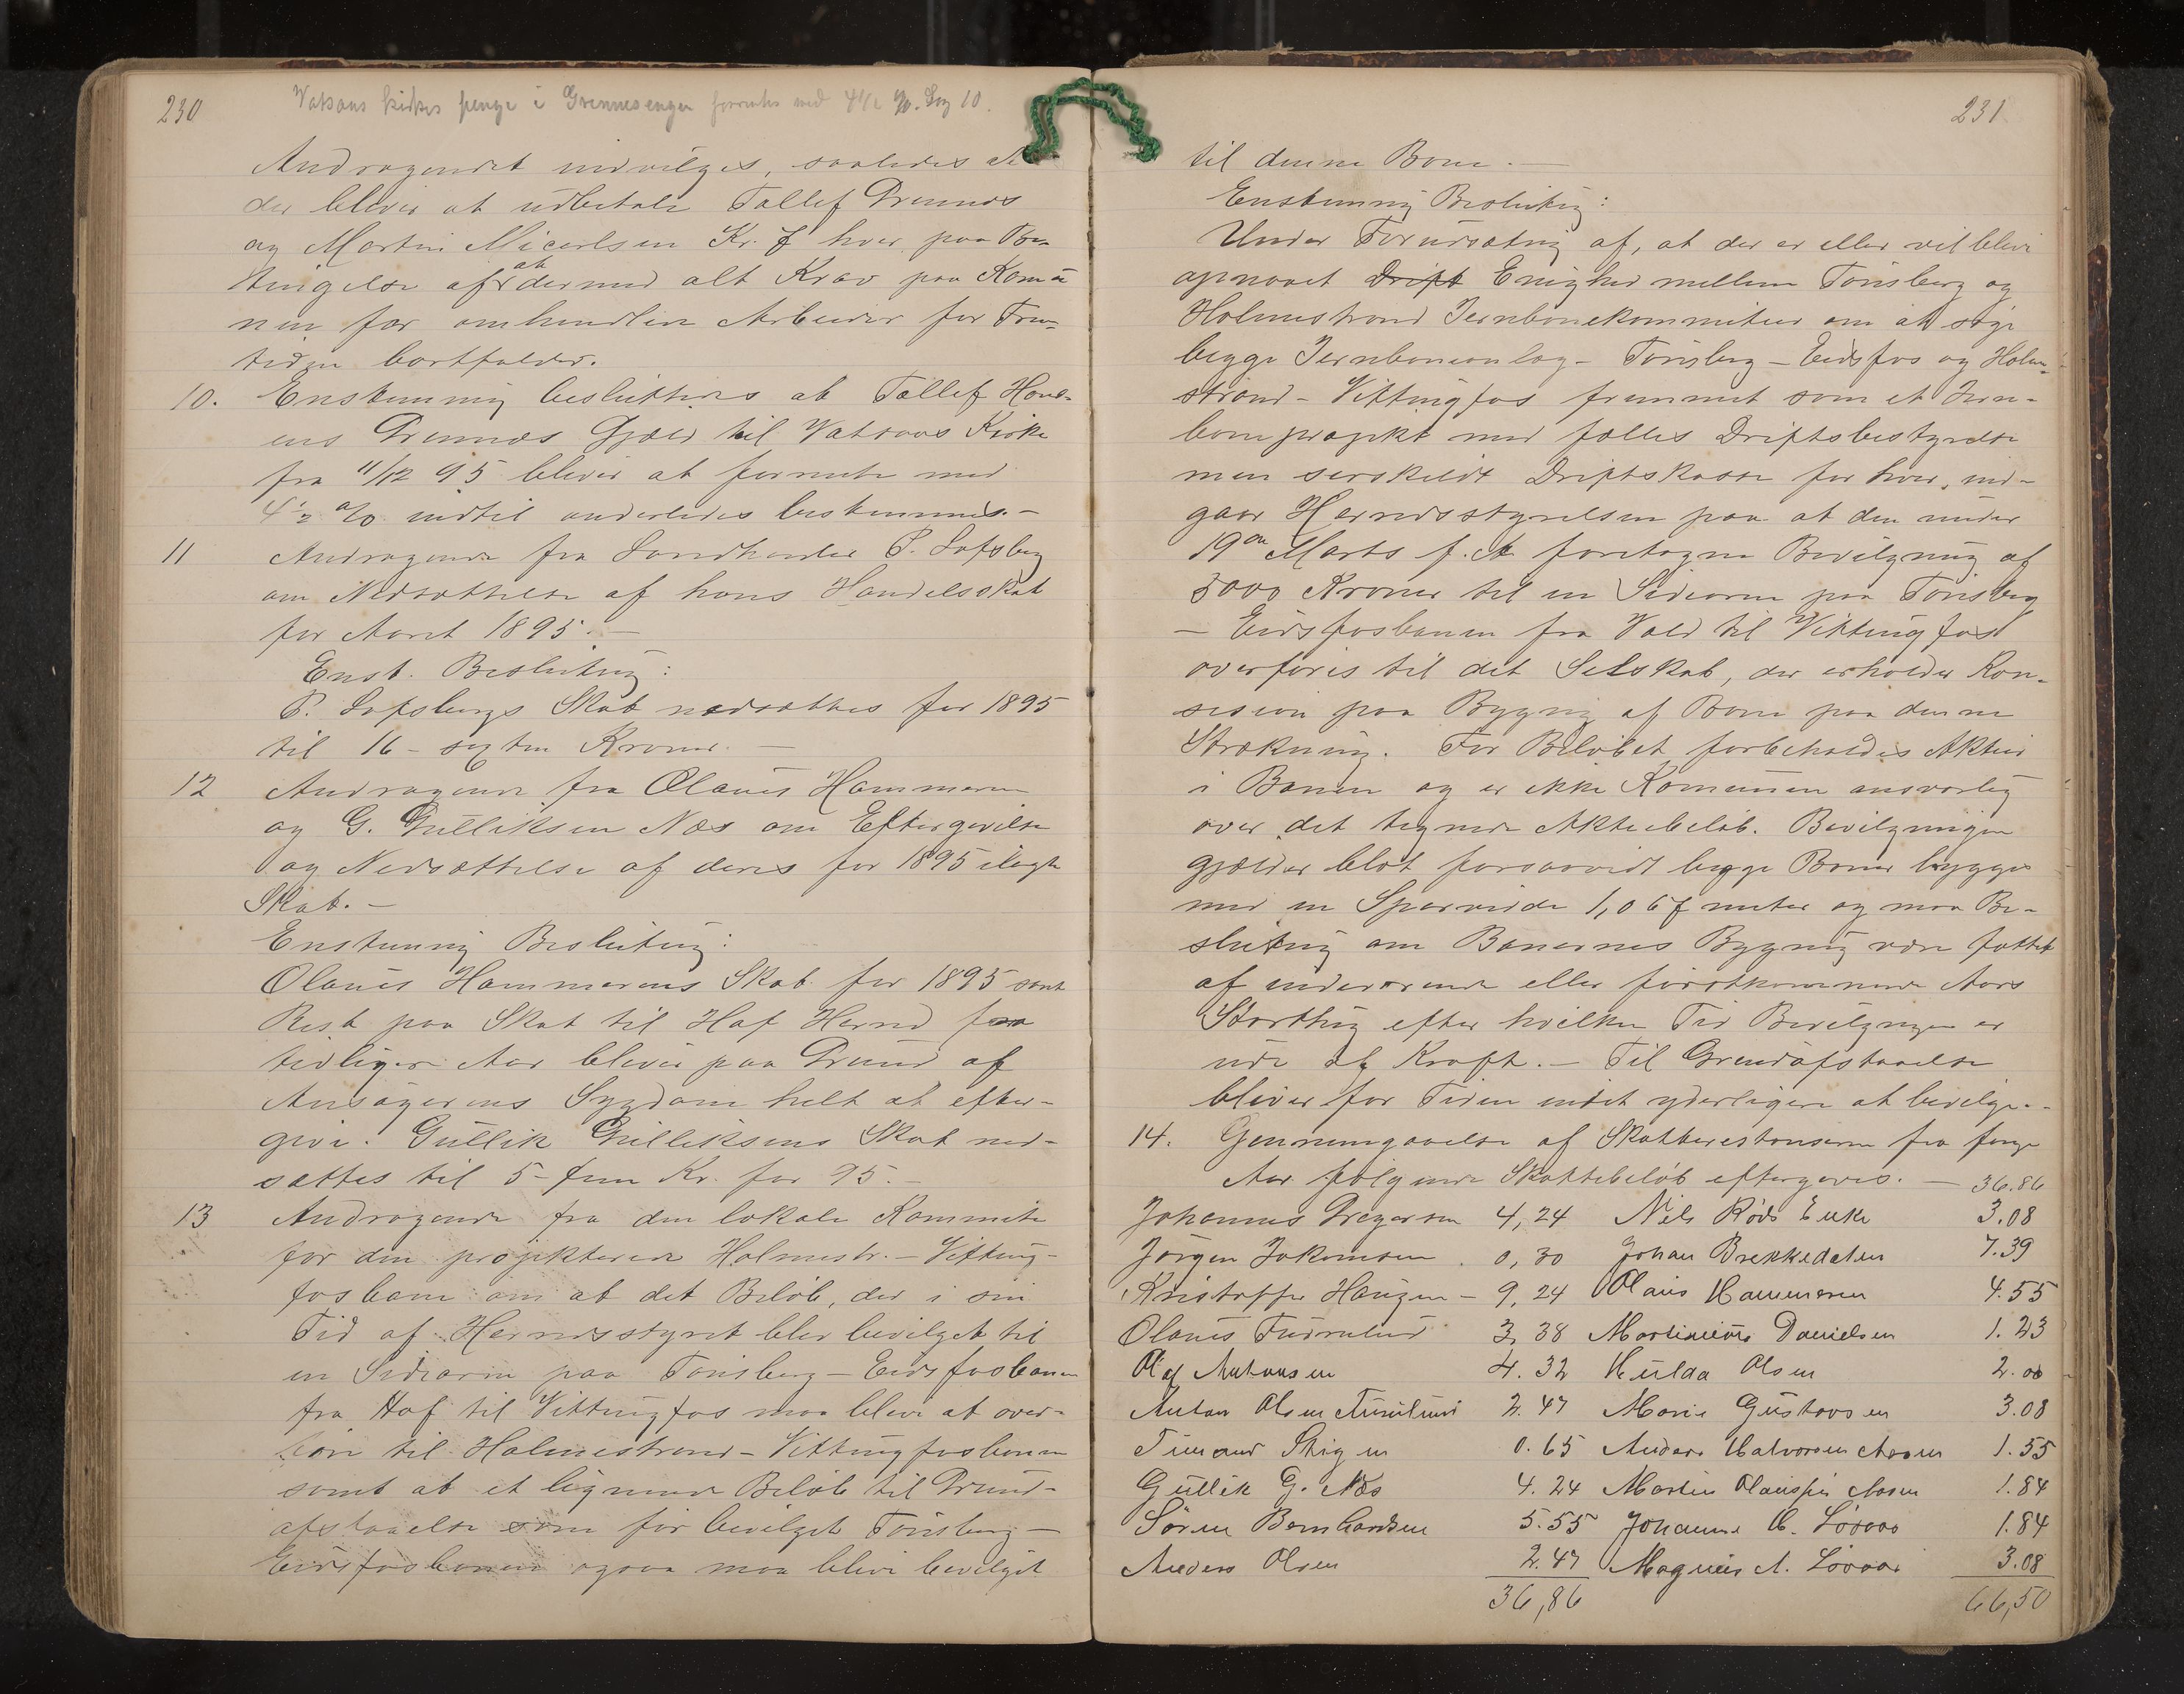 230
Vatsaas kirkes penge i Grennesengen forrentes med 4½ %. Sag 10.
Andragendet indvilges, saaledes at
der bliver at udbetale Tollef Grennes
og Martin Micaelsen Kr. 7 hver paa Be-
tingelse af at dermed alt Krav paa Komu-
nen for omhandlede Arbeider for Frem-
tiden bortfalder.
10. Enstemmig besluttedes at Tollef Hans-
ens Grennes Gjæld til Vatsaas Kirke
fra 11/12 95 bliver at forrente med
4½ % indtil anderledes bestemmes. -
11 Andragende fra Landhandler P. Lofsberg
om Nedsættelse af hans Handelsskat
for Aaret 1895. -
Enst. Beslutning:
P. Lofsbergs Skat nedsættes for 1895
til 16 - sexten Kroner. -
12 Andragende fra Olaus Hammeren
og G. Gulliksen Næs om Eftergivelse
og Nedsættelse af deres for 1895 ilagte
Skat. -
Enstemmig Beslutning:
Olaus Hammerens Skat for 1895 samt
Rest paa Skat til Hof Herred fra
tidligere Aar bliver paa Grund af
Ansøgerens Sygdom helt at efter-
give. Gullik Gulliksens Skat ned-
sættes til 5 - fem Kr. for 95. -
13 Andragende fra den lokale Kommite
for den projekterede Holmestr. - Vitting-
fosbane om at det Beløb, der i sin
Tid af Herredsstyret blev bevilget til
en Sidearm paa Tønsberg - Eidsfosbanen
fra Hof til Vittingfos maa blive at over-
føre til Holmestrand - Vittingfosbanen
samt at et lignende Beløb til Grund-
afstaaelse som før bevilget Tønsberg -
Eidsfosbanen ogsaa maa blive bevilget
231
til denne Bane. -
Enstemmig Beslutning:
Under Forudsætning af, at der er eller vil blive
opnaaet Drift Enighed mellem Tønsberg og
Holmestrand Jernbanekommiteer om at søge
begge Jernbaneanlæg - Tønsberg - Eidsfos og Holme-
strand - Vittingfos fremmet som et Jern-
baneprojekt med fælles Driftsbestyrelse
men særskildt Driftskasse for hver, ind-
gaar Herredsstyrelsen paa at den under
19de Marts f. A. foretagne Bevilgning af
5000 Kroner til en Sidearm paa Tønsberg
- Eidsfosbanen fra Vold til Vittingfos
overføres til det Selskab, der erholder Kon-
sesion paa Bygning af Bane paa denne
Strækning. For Beløbet forbeholdes Aktier
i Banen og er ikke Komunen ansvarlig
over det tegnede Aktiebeløb. Bevilgningen
gjælder blot forsaavidt begge Baner bygges
med en Sporvidde 1,067 meter og maa Be-
slutning om Banernes Bygning være fattet
af indeværende eller førstkommende Aars
Storthing efter hvilken Tid Bevilgningen er
ude af Kraft. - Til Grundafstaaelse
bliver for Tiden intet yderligere at bevilge. -
14. Gennemgaaelse af Skatterestanserne fra forige
Aar følgende Skattebeløb eftergives. - 36.86
Johannes Gregersen 4,24 Nils Røds Enke 3.08
Jørgen Jokomsen 0,30 Johan Brekkedalen 7.39
Kristoffer Haugen - 9,24 Olaus Hammeren 4.55
Olaus Furulund 3,38 Martinius Danielsen 1.23
Olaf Antonsen 4.32 Hulda Olsen 2.00
Anton Olsen Furulund 2.47 Marie Gustavsen 3.08
Simand Stigen 0.65 Anders Halvorsen Aasen 1.55
Gullik G. Næs 4.24 Martin Aasen 1.84
Søren Bernhardsen 5.55 Johannes H. Løvaas 1.84
Anders Olsen 2.47 Magnus A. Løvaas 3.08
36,86 66,50